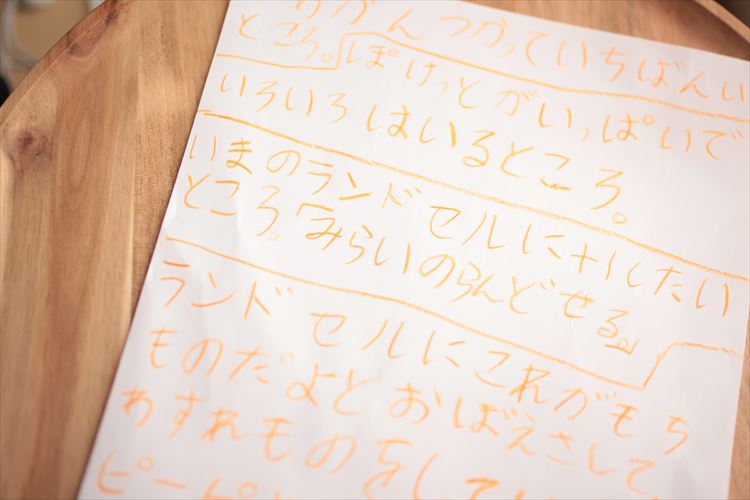 かんつかっていちばんい
ところ。ぽけっとがいっぱいで
いろいろはいるところ。
いまのランドセルに+1したい
ところ。「みらいのらんどせる」
ランドセルにこれがもち
ものだよとおばえさして
わすれものをして
ピーピ